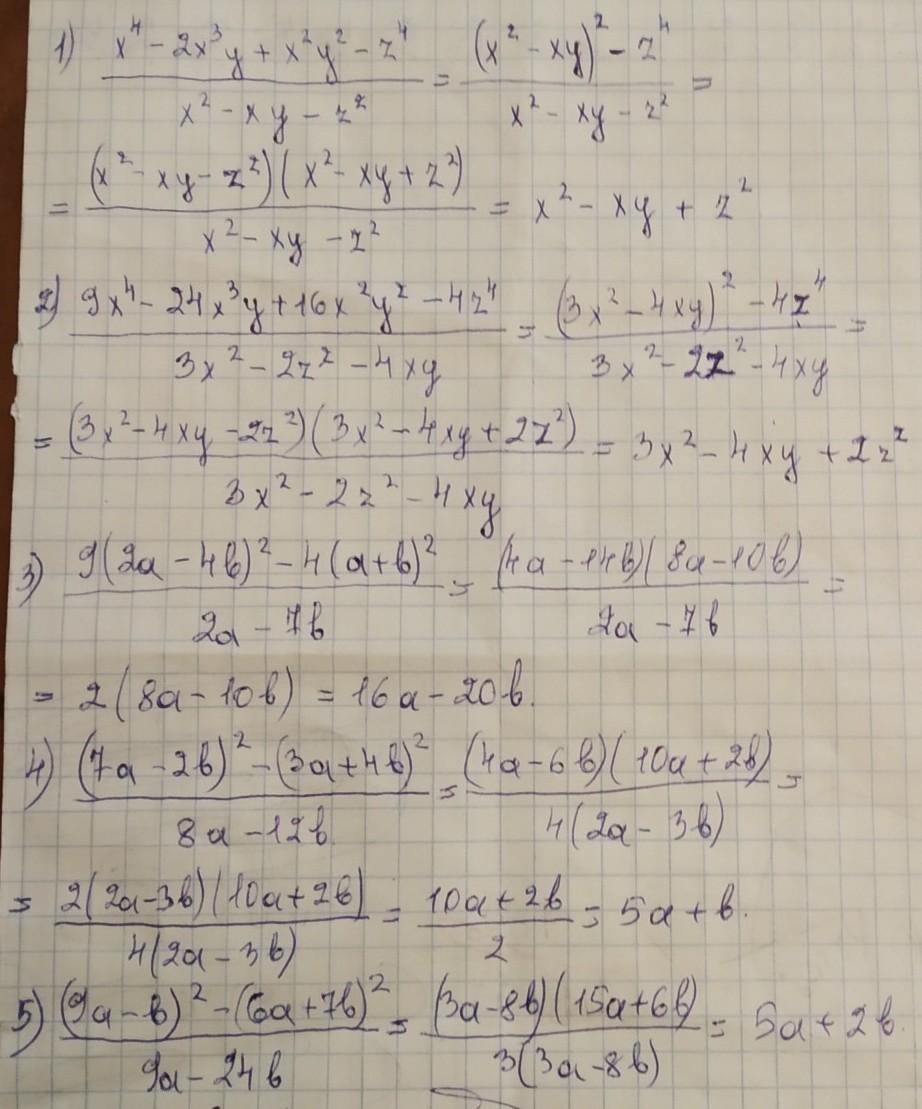 1) (x⁴ - 2x³y + x²y² - z⁴)/(x² - xy - z²) = ((x² - xy)² - z⁴)/(x² - xy - z²) =
= ((x² - xy - z²)(x² - xy + z²))/(x² - xy - z²) = x² - xy + z²
2) (9x⁴ - 24x³y + 16x²y² - 4z⁴)/(3x² - 2z² - 4xy) = ((3x² - 4xy)² - 4z⁴)/(3x² - 2z² - 4xy) =
= ((3x² - 4xy - 2z²)(3x² - 4xy + 2z²))/(3x² - 2z² - 4xy) = 3x² - 4xy + 2z²
3) (9(2a - 4b)² - 4(a + b)²)/(2a - 7b) = ((4a - 14b)(8a - 10b))/(2a - 7b) =
= 2(8a - 10b) = 16a - 20b.
4) ((7a - 2b)² - (3a + 4b)²)/(8a - 12b) = ((4a - 6b)(10a + 2b))/(4(2a - 3b)) =
= (2(2a - 3b)(10a + 2b))/(4(2a - 3b)) = (10a + 2b)/2 = 5a + b.
5) ((9a - b)² - (6a + 7b)²)/(9a - 24b) = ((3a - 8b)(15a + 6b))/(3(3a - 8b)) = 5a + 2b.